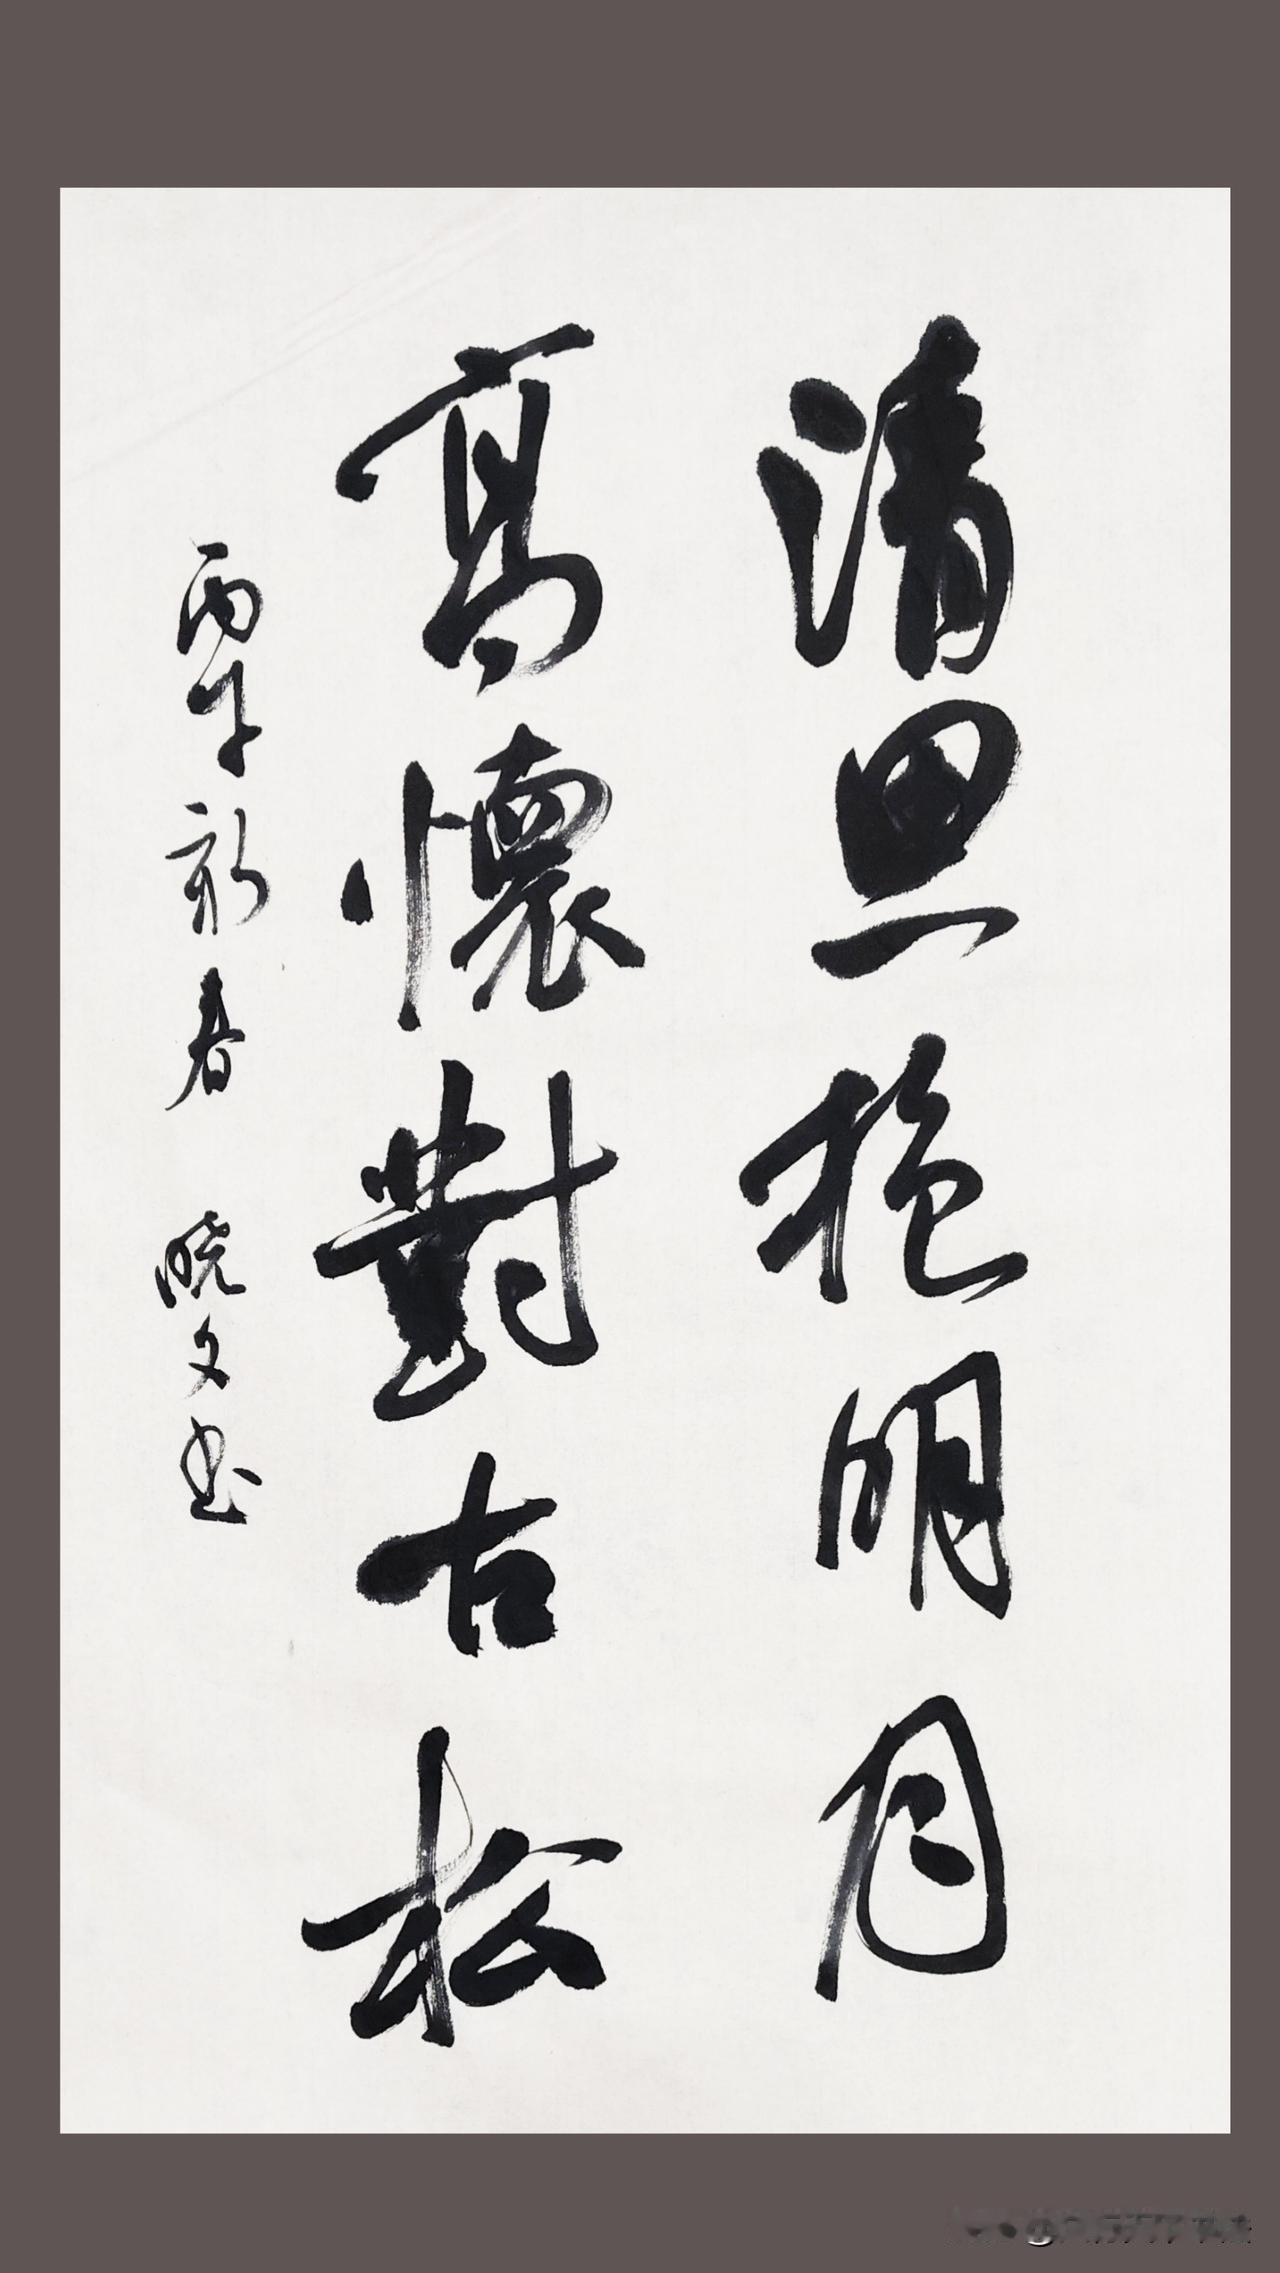 清思抱明月
高懷對古松
丙午新春 晓文书